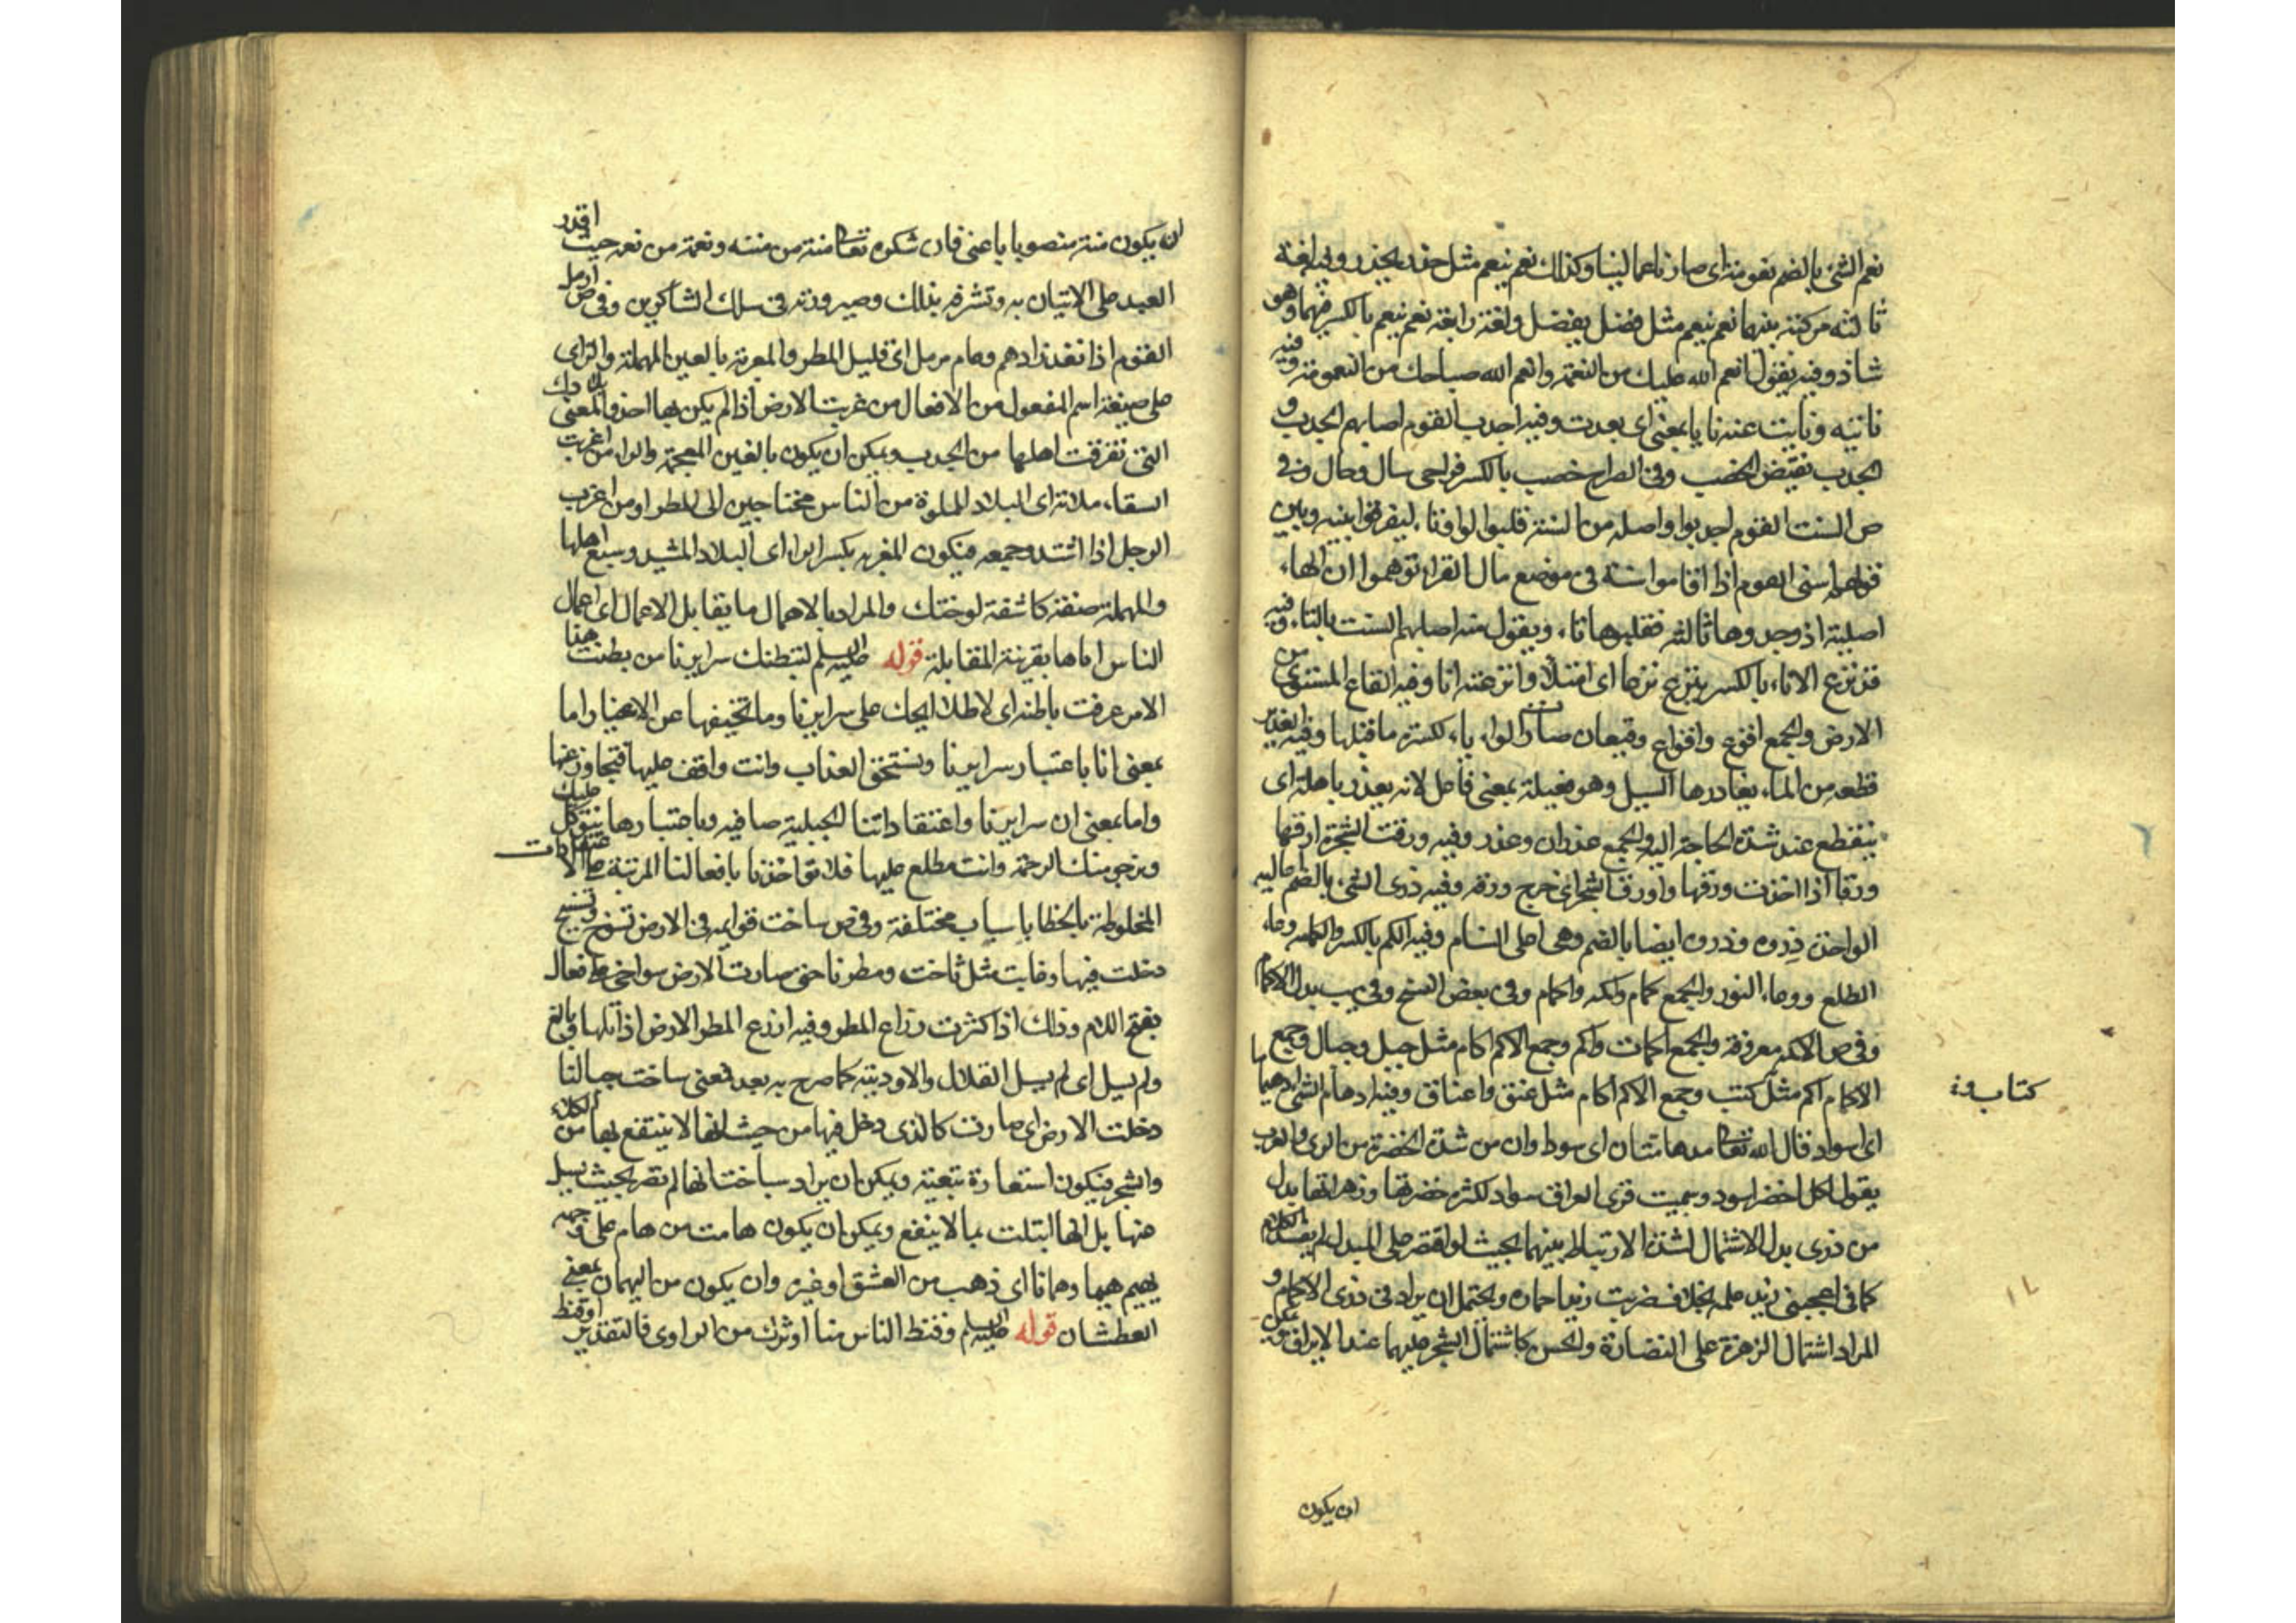 نعم الشئ بالضم نعومة اى صار ناعما لينا وكذلك نعم ينعم مثل حذر يحذر وفيه لغة
ثالثة مركبة بينهما نعم ينعم مثل فضل يفضل ولغة رابعة نعم ينعم بالكسر فيهما وهو
شاذ وفيه يقول انعم الله عليك من النعمة وانعم الله صباحك من النعومة وفيه
نانيه ونايت عنه نايا بمعنى اى بعدت وفيه اجدب القوم اصابهم الجدب و
الجدب نقيض الخصب وفى الصراح خصب بالكسر فراخى سال وحال وفى
ص اسنت القوم اجدبوا واصله من السنة قلبوا الواو تاء ليفرقوا بينه وبين
قولهم اسنى القوم اذا اقاموا سنة فى موضع قال الفراء توهموا ان الهاء
اصلية اذ وجدوها ثالثة فقلبوها تاء ويقول منه اصابهم السنت بالتاء وفيه
قد نزع الاناء بالكسر ينزع نزعا اى امتلأ وانزعته انا وفيه القاع المستوى من
الارض والجمع اقوع واقواع وقيعان صارت الواو ياء لكسرة ما قبلها وفيه الغدير
قطعة من الماء يغادرها السيل وهو فعيلة بمعنى فاعل لانه يغدر باهله اى
ينقطع عند شدة الحاجة اليه والجمع غدران وغدر وفيه ورقت الشجرة ارقها
ورقا اذا اخذت ورقها واورق الشجر اى خرج ورقه وفيه ذرى الشئ بالضم اعاليه
الواحدة ذروه وذروه ايضا بالضم وهى اعلى السنام وفيه الكم بالكسر والكمامه وعاء
الطلع ووعاء النور والجمع كمام واكمه واكمام وفى بعض النسخ وفى يب بدل الاكمام الاكام
وفى ص الاكمه معروفة والجمع اكمات واكم وجمع الاكم اكام مثل جبل وجبال وجمع
الاكام اكم مثل كتاب وكتب وجمع الاكم اكام مثل عنق واعناق وفيه ادهام الشئ ادهيماما
اى اسواد قال الله تعا مدهامتان اى سوداوان من شدة الخضرة من الرى والعرب
يقول لكل اخضر اسود وسميت قرى العراق سوادا لكثرة خضرتها وزهراتها بدل
من ذرى بدل الاشتمال لشدة الارتباط بينهما بحيث لو اقتصر على المبدل لم يفسد الكلام
كما فى اعجبنى زيد علمه بخلاف ضربت زيدا حماره ويحتمل ان يراد فى ذرى الاكمام و
المراد اشتمال الزهرة على النضارة والحسن كاشتمال الشجر عليهما عند الايراق ويمكن
كتاب و
ان يكون
ان يكون منة منصوبا باعنى فان شكره تعا منة من مننه ونعمة من نعمه حيث اقدر
العبد على الاتيان به وتشرفه بذلك وصيرورته فى سلك الشاكرين وفى ص ارمل
القوم اذا نفد زادهم وعام مرمل اى قليل المطر والمعزبة بالعين المهملة والزاى
على صيغة اسم المفعول من الافعال من عزبت الارض اذا لم يكن بها احد والمعنى بلادك
التى تفرقت اهلها من الجدب ويمكن ان يكون بالغين المعجمة والراء من اغرب
السقاء ملاءه اى البلاد المملوة من الناس محتاجين الى المطر او من اغرب
الرجل اذا اشتد وجعه فيكون المغربه بكسر الراء اى البلاد المشتد وجع اهلها
والمهملة صفة كاشفة لوحشك والمراد بالاهمال ما يقابل الاعمال اى اعمال
الناس اياها بقرينة المقابلة قوله عليه السلم لتبطنك سرايرنا من بطنت هذا
الامر عرفت باطنه اى لاطلاعك على سرايرنا وما تخفيها عن الاغيار اما
بمعنى انا باعتبار سرايرنا ونستحق العذاب وانت واقف عليها فتجاوز عنها
واما بمعنى ان سرايرنا واعتقاداتنا الجبلية صافيه وباعتبارها نتوكل عليك
ونرجو منك الرحمة وانت مطلع عليها فلا تؤاخذنا بافعالنا المرتبة على الاعتقادات
المخلوطة بالخطا باسباب مختلفة وفى ص ساخت قوايمه فى الارض تسوخ وتسيخ
دخلت فيها وغابت مثل ثاخت ومطرنا حتى صارت الارض سواخى على فعالى
بفتح اللام وذلك اذا كثرت رزاغ المطر وفيه ارزغ المطر الارض اذا بلها وبالغ
ولم يسل اى لم يسل القلال والاودية كما صرح به بعد فمعنى ساخت جبالنا
دخلت الارض اى صارت كالذى دخل فيها من حيث انها لا ينتفع بها من الكلاء
والشجر فيكون استعارة تبعية ويمكن ان يراد بساخت انها لم تصر بحيث يسيل
عنها بل انها ابتلت بما لا ينفع ويمكن ان يكون هامت من هام على وجهه
يهيم هيما وهمانا اى ذهب من العشق او غيره وان يكون من الهيمان بمعنى
العطشان قوله عليه السلم وقنط الناس منا او ترك من الراوى فالتقدير او قنط